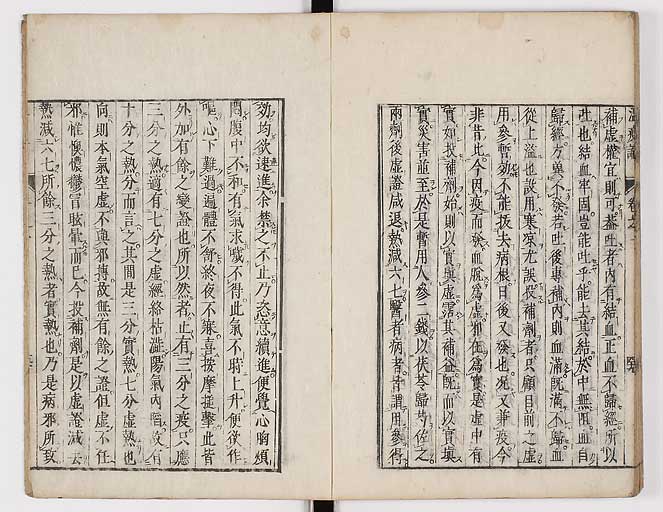 温疫論
卷之
補虛權宜則可蓋吐者內有結血正血不歸經所以
吐也結血牢固豈能吐乎能去其結於中無阻血自
歸經方冀不發若吐後專補內則血滿既滿不歸血
從上溢也設用寒涼尤誤投補劑者只顧目前之虛
用參暫効不能拔去病根日後又發也況又兼疫今
非昔比今因疫而發血脫為虛邪在為實是虛中有
實如投補劑始則以實填虛霑其補益既而以實填
實災害並至於是暫用人參二錢以茯苓歸芍佐之
兩劑後虛證減退熱減六七醫者病者皆謂用參得
効均欲速進余禁之不止乃恣意續進便覺心胸煩
悶腹中不和有氣求噦不得此氣不時上升便欲作
嘔心下難過遍體不舒終夜不寐喜按摩搥擊此皆
外加有餘之變證也所以然者止有三分之疫只應
三分之熱適有七分之虛經絡枯澁陽氣內陷故有
十分之熱分而言之其間是三分實熱七分虛熱也
向則本氣空虛不與邪搏故無有餘之證但虛不任
邪惟懊憹鬱冒眩暈而已今投補劑是以虛證減去
熱減六七所餘三分之熱者實熱也乃是病邪所致